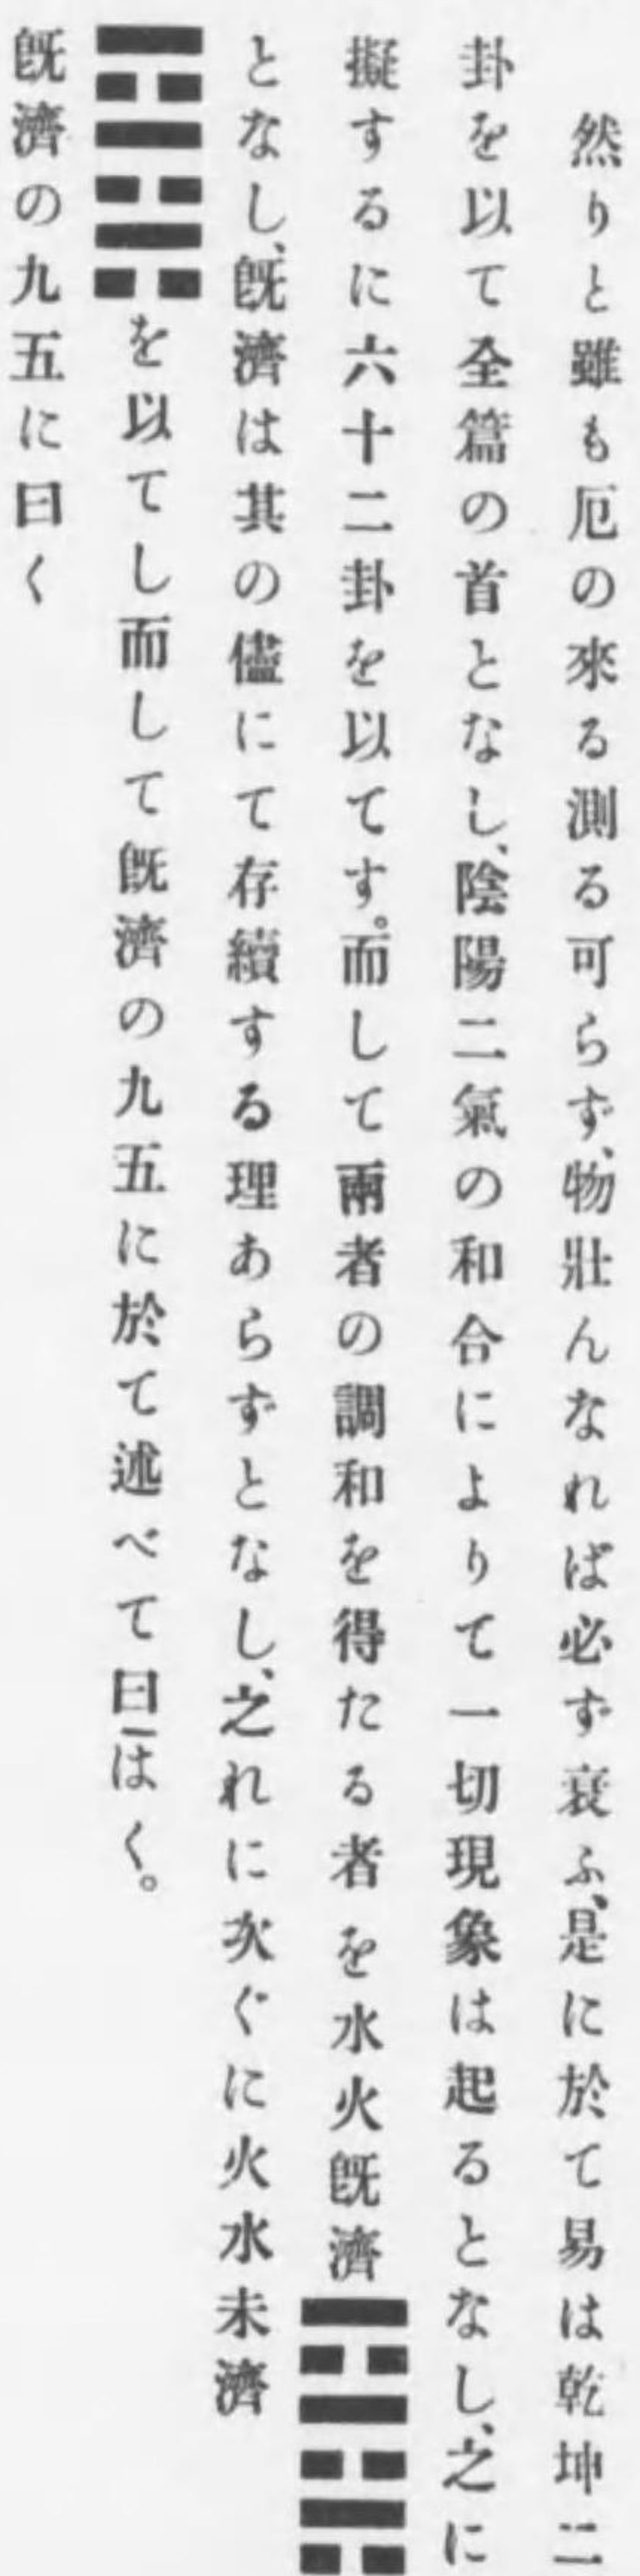 然りと雖も厄の來る測る可らず、物壯んなれば必ず衰ふ、是に於て易は乾坤二
卦を以て全篇の首となし、陰陽二氣の和合によりて一切現象は起るとなし、之に
擬するに六十二卦を以てす。而して兩者の調和を得たる者を水火旣濟䷿
となし、旣濟は其の儘にて存續する理あらずとなし、之れに次ぐに火水未濟
䷿を以てし而して旣濟の九五に於て述べて曰はく。
旣濟の九五に曰く